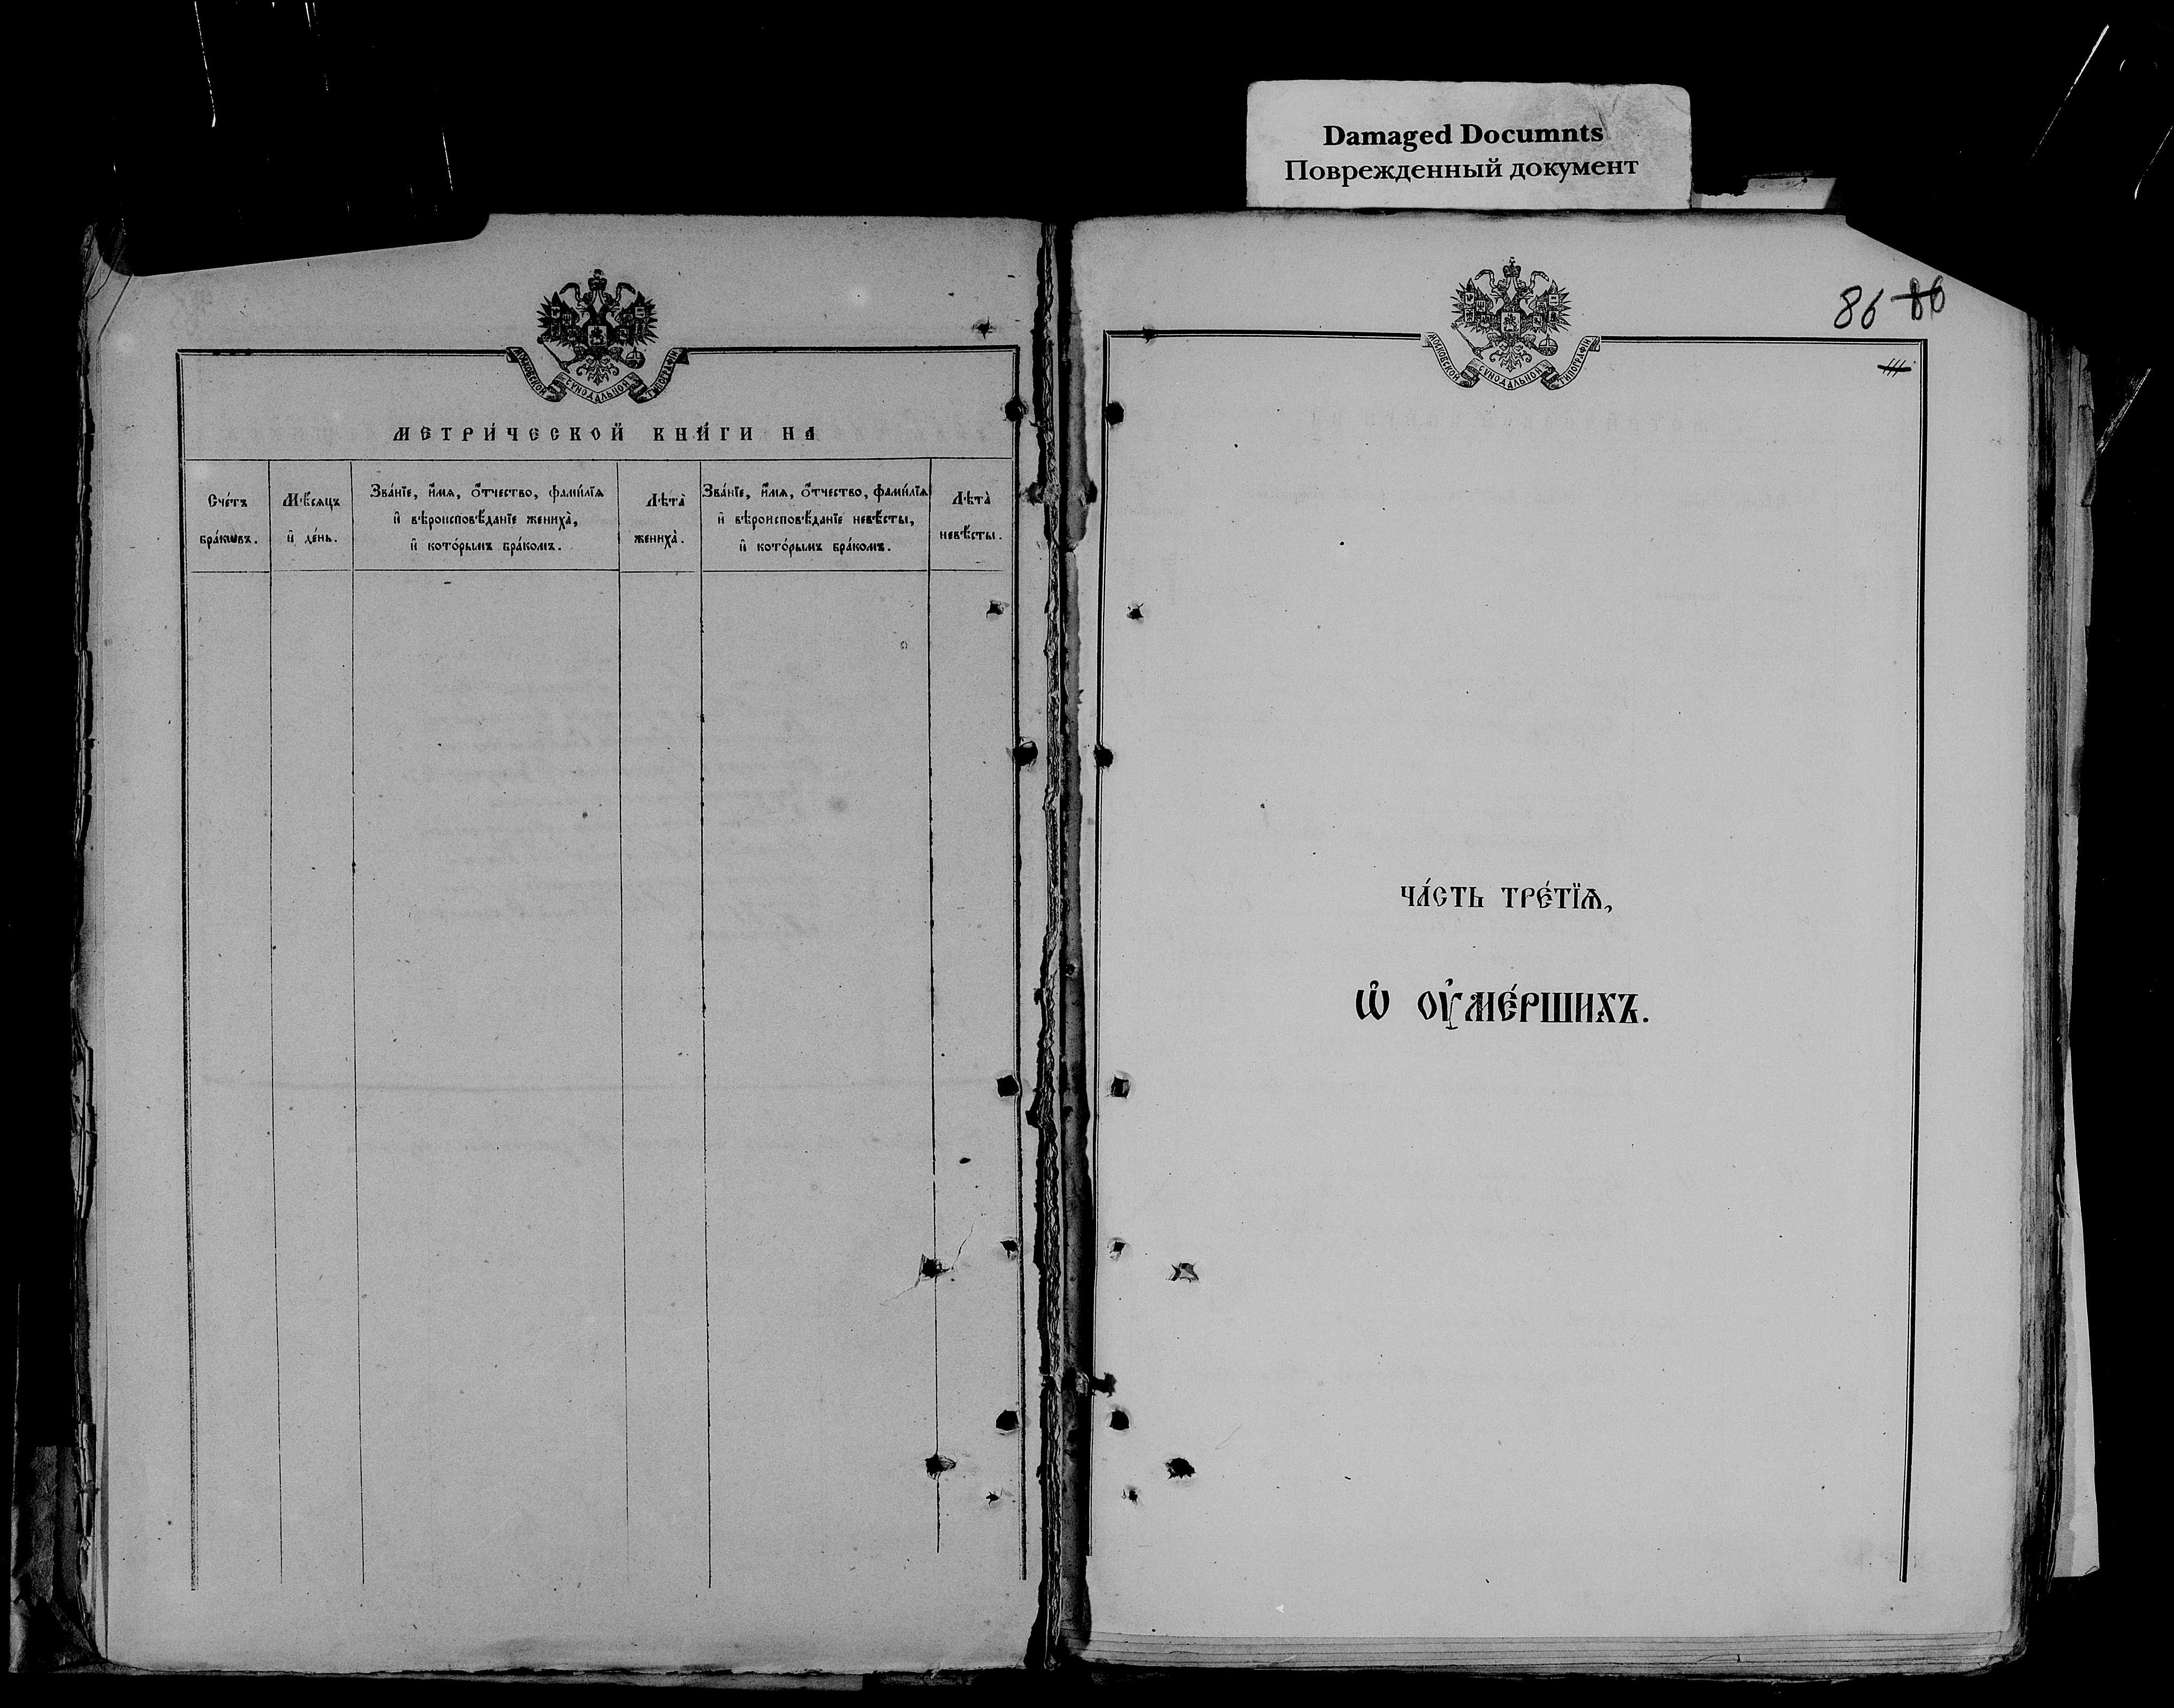 Damaged Documnts
Поврежденный документ
МОСКОВСКОЙ СѴНОДАЛЬНОЙ ТИПОГРАФІИ
МЕТРИ́ЧЕСКОЙ КНИ́ГИ НА
Сче́тъ бра́кѡвъ.
Мѣ́сяцъ и҆ де́нь.
Зва́нїе, и҆́мѧ, ѻ҆́тчество, фами́лїѧ
и҆ вѣроисповѣ́данїе жениха̀,
и҆ кото́рымъ бра́комъ.
Лѣта̀ жениха̀.
Зва́нїе, и҆́мѧ, ѻ҆́тчество, фами́лїѧ
и҆ вѣроисповѣ́данїе невѣ́сты,
и҆ кото́рымъ бра́комъ.
Лѣта̀ невѣ́сты.
МОСКОВСКОЙ СѴНОДАЛЬНОЙ ТИПОГРАФІИ
86 86
ЧА́СТЬ ТРЕ́ТЇѦ,
Ѡ҆ ОУ҆МЕ́РШИХЪ.